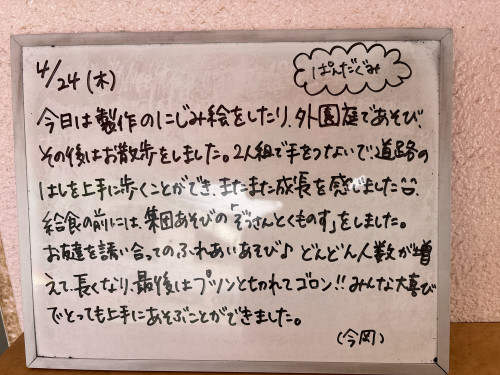 4/24(木)
ぱんだぐみ
今日は製作のにじみ絵をしたり、外園庭であそび、
その後はお散歩をしました。2人組で手をつないで、道路の
はしを上手に歩くことができ、またまた成長を感じました
給食の前には、集団あそびの「ぞうさんとくものす」をしました。
お友達を誘い合ってのふれあいあそび♪ どんどん人数が増
えて、長くなり、最後はプツンと切れてゴロン!!みんな大喜び
でとっても上手にあそぶことができました。
(今岡)